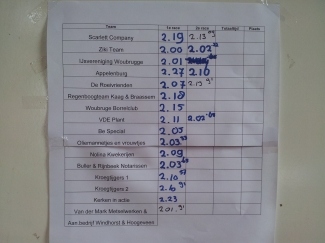 Team 1e race 2e race Totaaltijd Plaats
Scarlett Company 2.19 2.13
Ziki Team 2.00 2.02
IJsvereniging Woubrugge 2.01
Appelenburg 2.27 2.10
De Roeivrienden 2.07 2.13
Regenboogteam Kaag & Braassem 2.18
Woubrugse Borrelclub 2.15
VDE Plant 2.11 2.02
Be Special 2.05
Oliemannetjes en vrouwtjes 2.03
Nolina Kwekerijen 2.09
Buller & Rijnbeek Notarissen 2.03
Kroegtijgers 1 2.10
Kroegtijgers 2 2.6
Kerken in actie 2.23
Van der Mark Metselwerken & 2.01
Aan.bedrijf Windhorst & Hoogeveen